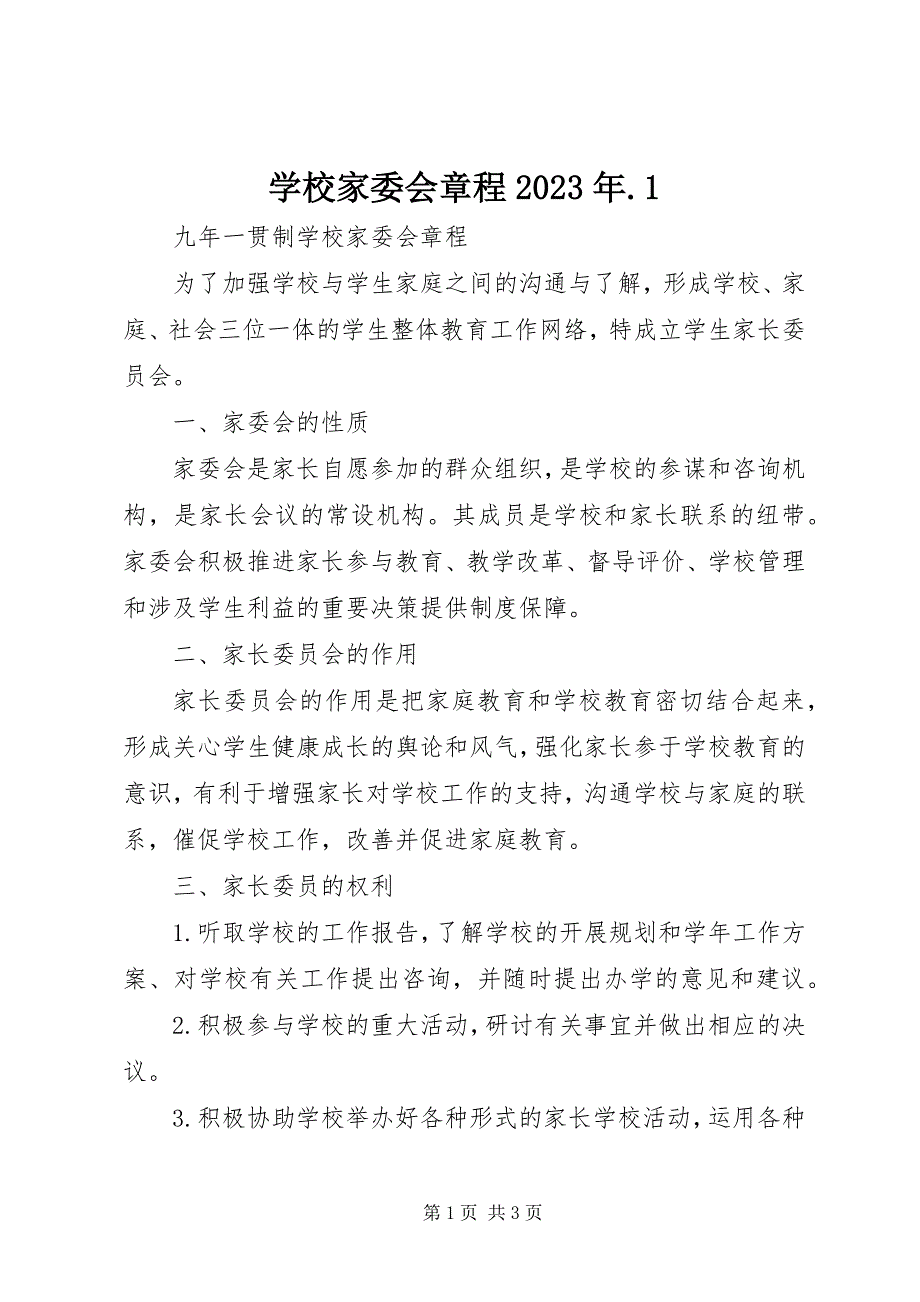 学校家委会章程 2023 年.1
九年一贯制学校家委会章程
为了加强学校与学生家庭之间的沟通与了解，形成学校、家
庭、社会三位一体的学生整体教育工作网络，特成立学生家长委
员会。
一、家委会的性质
家委会是家长自愿参加的群众组织，是学校的参谋和咨询机
构，是家长会议的常设机构。其成员是学校和家长联系的纽带。
家委会积极推进家长参与教育、教学改革、督导评价、学校管理
和涉及学生利益的重要决策提供制度保障。
二、家长委员会的作用
家长委员会的作用是把家庭教育和学校教育密切结合起来，
形成关心学生健康成长的舆论和风气，强化家长参于学校教育的
意识，有利于增强家长对学校工作的支持，沟通学校与家庭的联
系，催促学校工作，改善并促进家庭教育。
三、家长委员的权利
1.听取学校的工作报告，了解学校的开展规划和学年工作方
案、对学校有关工作提出咨询，并随时提出办学的意见和建议。
2.积极参与学校的重大活动，研讨有关事宜并做出相应的决
议。
3.积极协助学校举办好各种形式的家长学校活动，运用各种
第 1 页 共 3 页